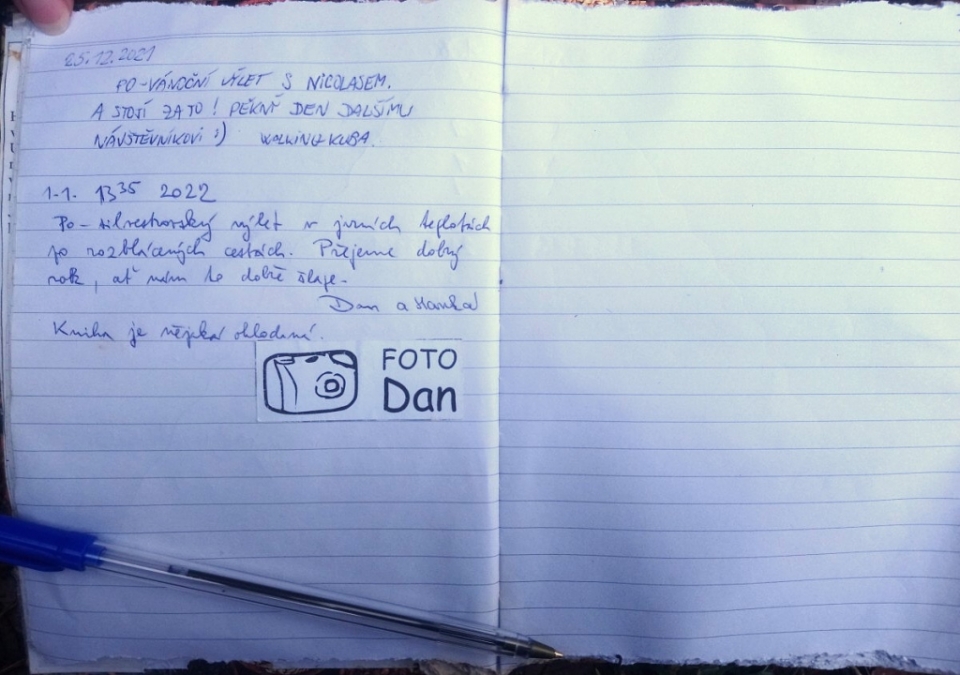 25.12.2021
PO-VÁNOČNÍ VÝLET S NICOLASEM.
A STOJÍ ZA TO! PĚKNÝ DEN DALŠÍMU
NÁVŠTĚVNÍKOVI :) WALKINGKUBA.
1.1. 13³⁵ 2022
Po-silvestrovský výlet v jarních teplotách
po rozblácených cestách. Přejeme dobrý
rok, ať nám to dobře šlape.
Dan a Hanka
Kniha je nějaká ohlodaná.
FOTO
Dan